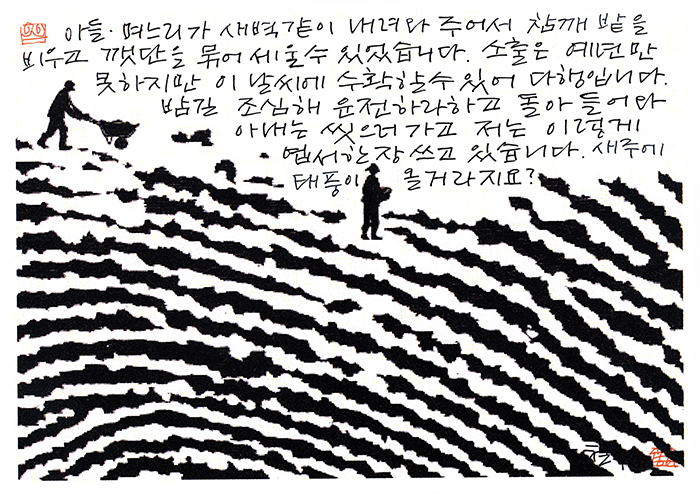 아들·며느리가 새벽같이 내려와 주어서 참깨 밭을
비우고 깻단을 묶어 세울수 있었습니다. 소출은 예년만
못하지만 이 날씨에 수확할수 있어 다행입니다.
밤길 조심해 운전하라하고 돌아 들어와
아내는 씻으러 가고 저는 이렇게
엽서한장 쓰고 있습니다. 새주에
태풍이 올거라지요?